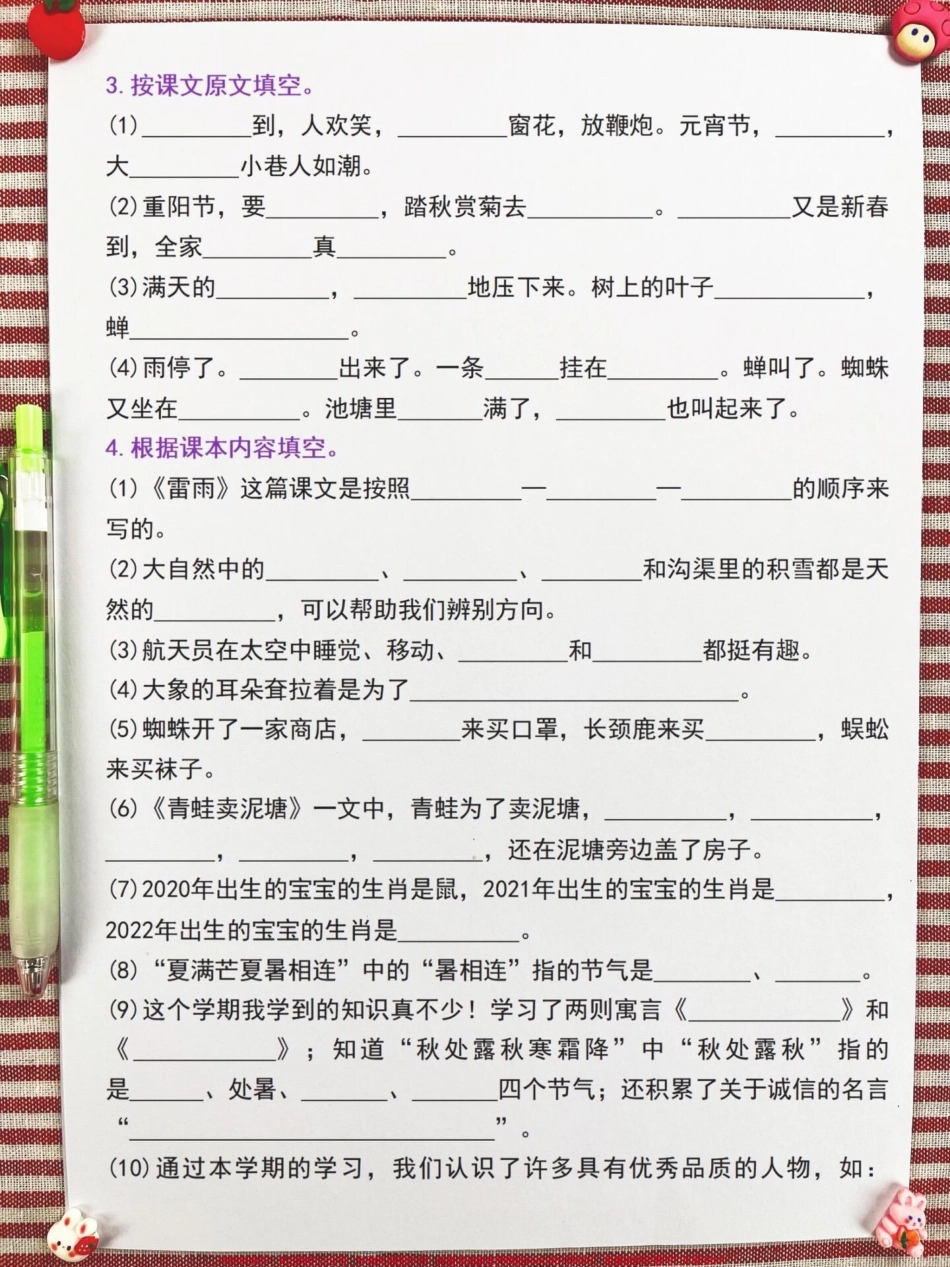 3.按课文原文填空。
(1)_________到，人欢笑，_________窗花，放鞭炮。元宵节，_________，
大_________小巷人如潮。
(2)重阳节，要_________，踏秋赏菊去__________。_________又是新春
到，全家_________真_________。
(3)满天的_________，_________地压下来。树上的叶子____________，
蝉__________________。
(4)雨停了。________出来了。一条______挂在_________。蝉叫了。蜘蛛
又坐在__________。池塘里_______满了，_________也叫起来了。
4.根据课本内容填空。
(1)《雷雨》这篇课文是按照_________—_________—_________的顺序来
写的。
(2)大自然中的_________、_________、________和沟渠里的积雪都是天
然的__________，可以帮助我们辨别方向。
(3)航天员在太空中睡觉、移动、_________和_________都挺有趣。
(4)大象的耳朵耷拉着是为了___________________________。
(5)蜘蛛开了一家商店，________来买口罩，长颈鹿来买_________，蜈蚣
来买袜子。
(6)《青蛙卖泥塘》一文中，青蛙为了卖泥塘，__________，__________，
_________，_________，_________，还在泥塘旁边盖了房子。
(7)2020年出生的宝宝的生肖是鼠，2021年出生的宝宝的生肖是_________，
2022年出生的宝宝的生肖是__________。
(8)“夏满芒夏暑相连”中的“暑相连”指的节气是________、_______。
(9)这个学期我学到的知识真不少！学习了两则寓言《____________》和
《____________》；知道“秋处露秋寒霜降”中“秋处露秋”指的
是______、处暑、_______、_______四个节气；还积累了关于诚信的名言
“______________________________”。
(10)通过本学期的学习，我们认识了许多具有优秀品质的人物，如：